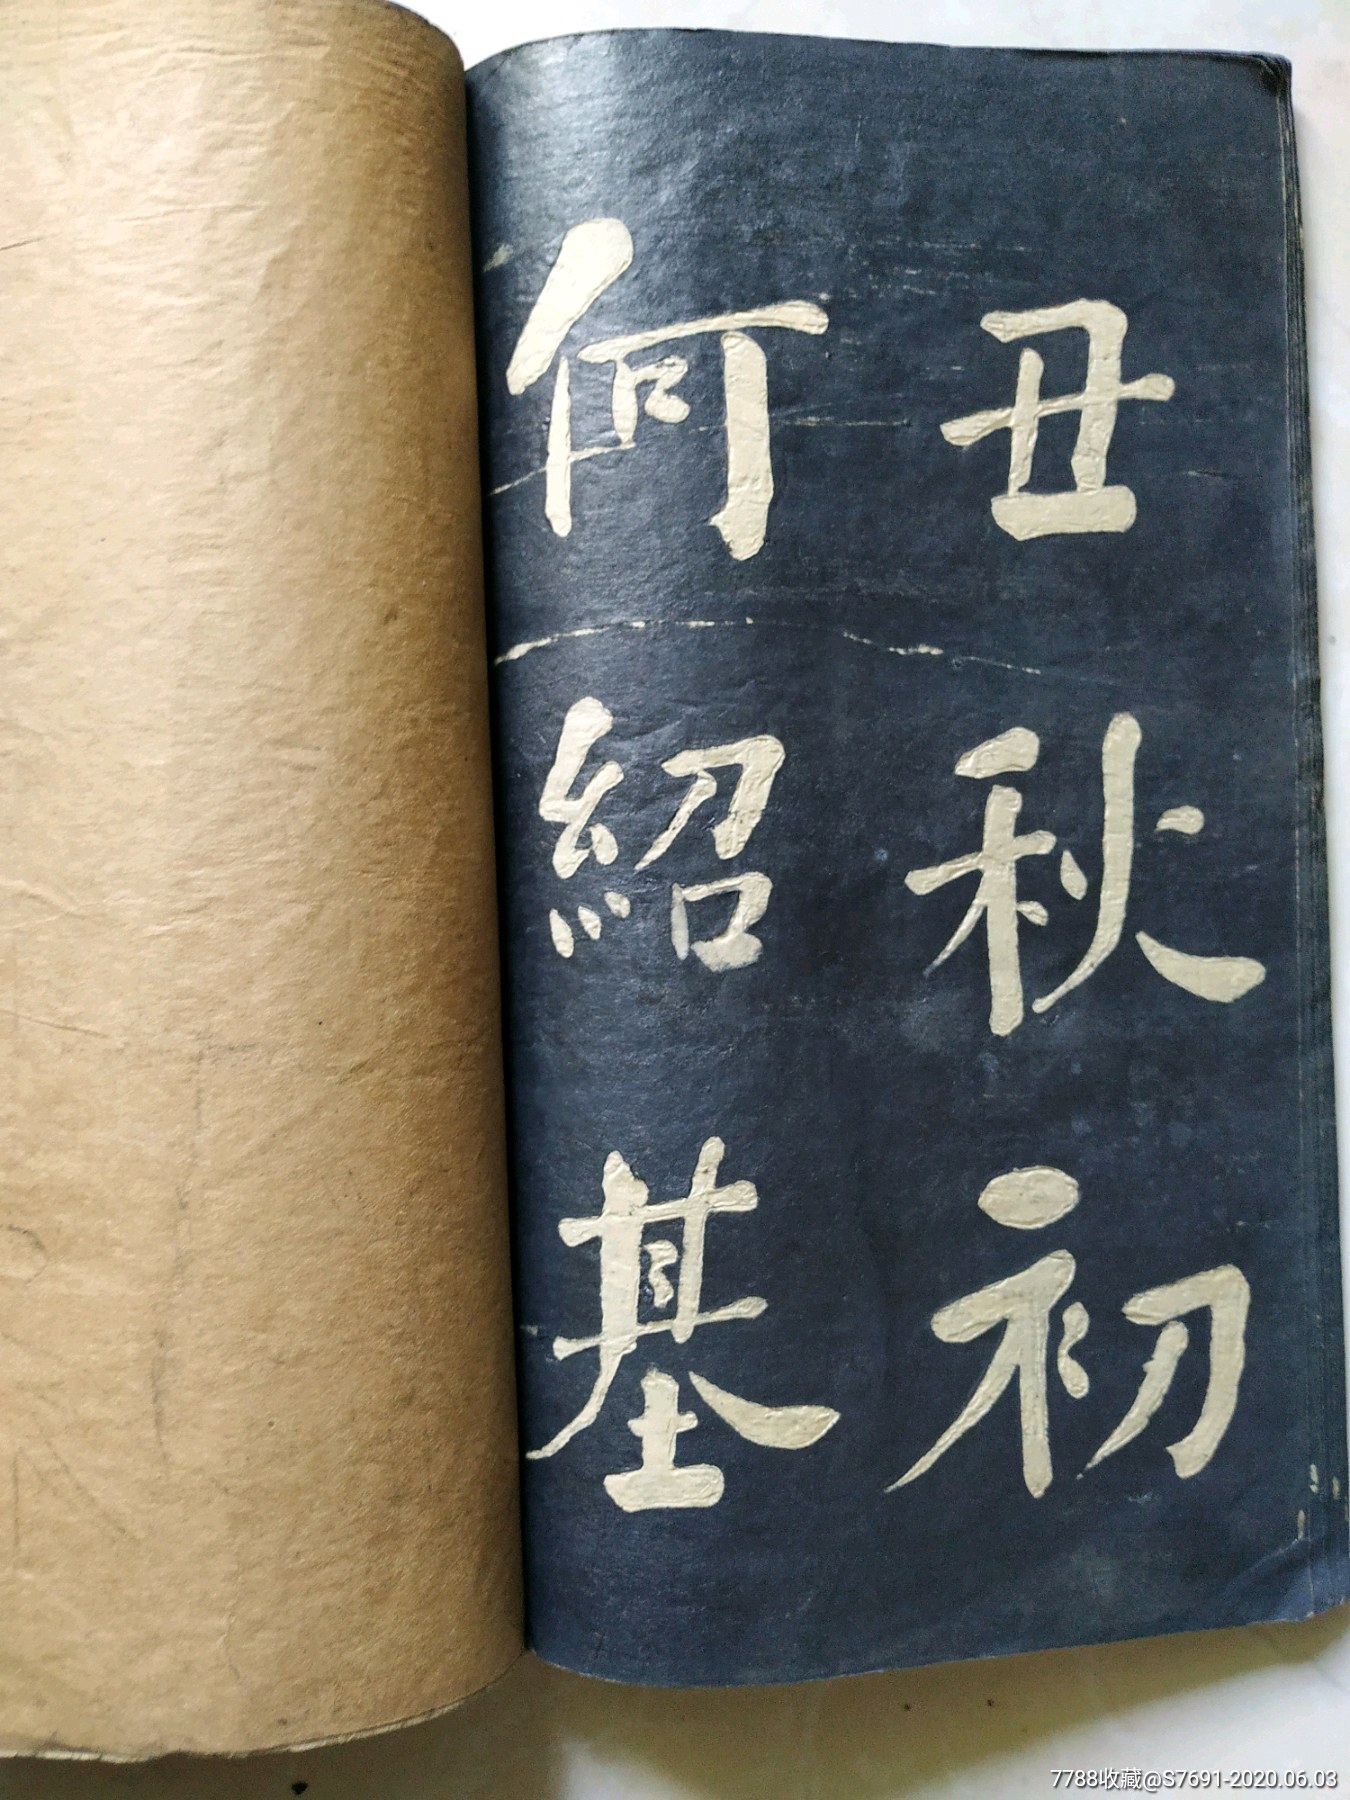 丑秋初
何紹基
7788收藏@S7691-2020.06.03